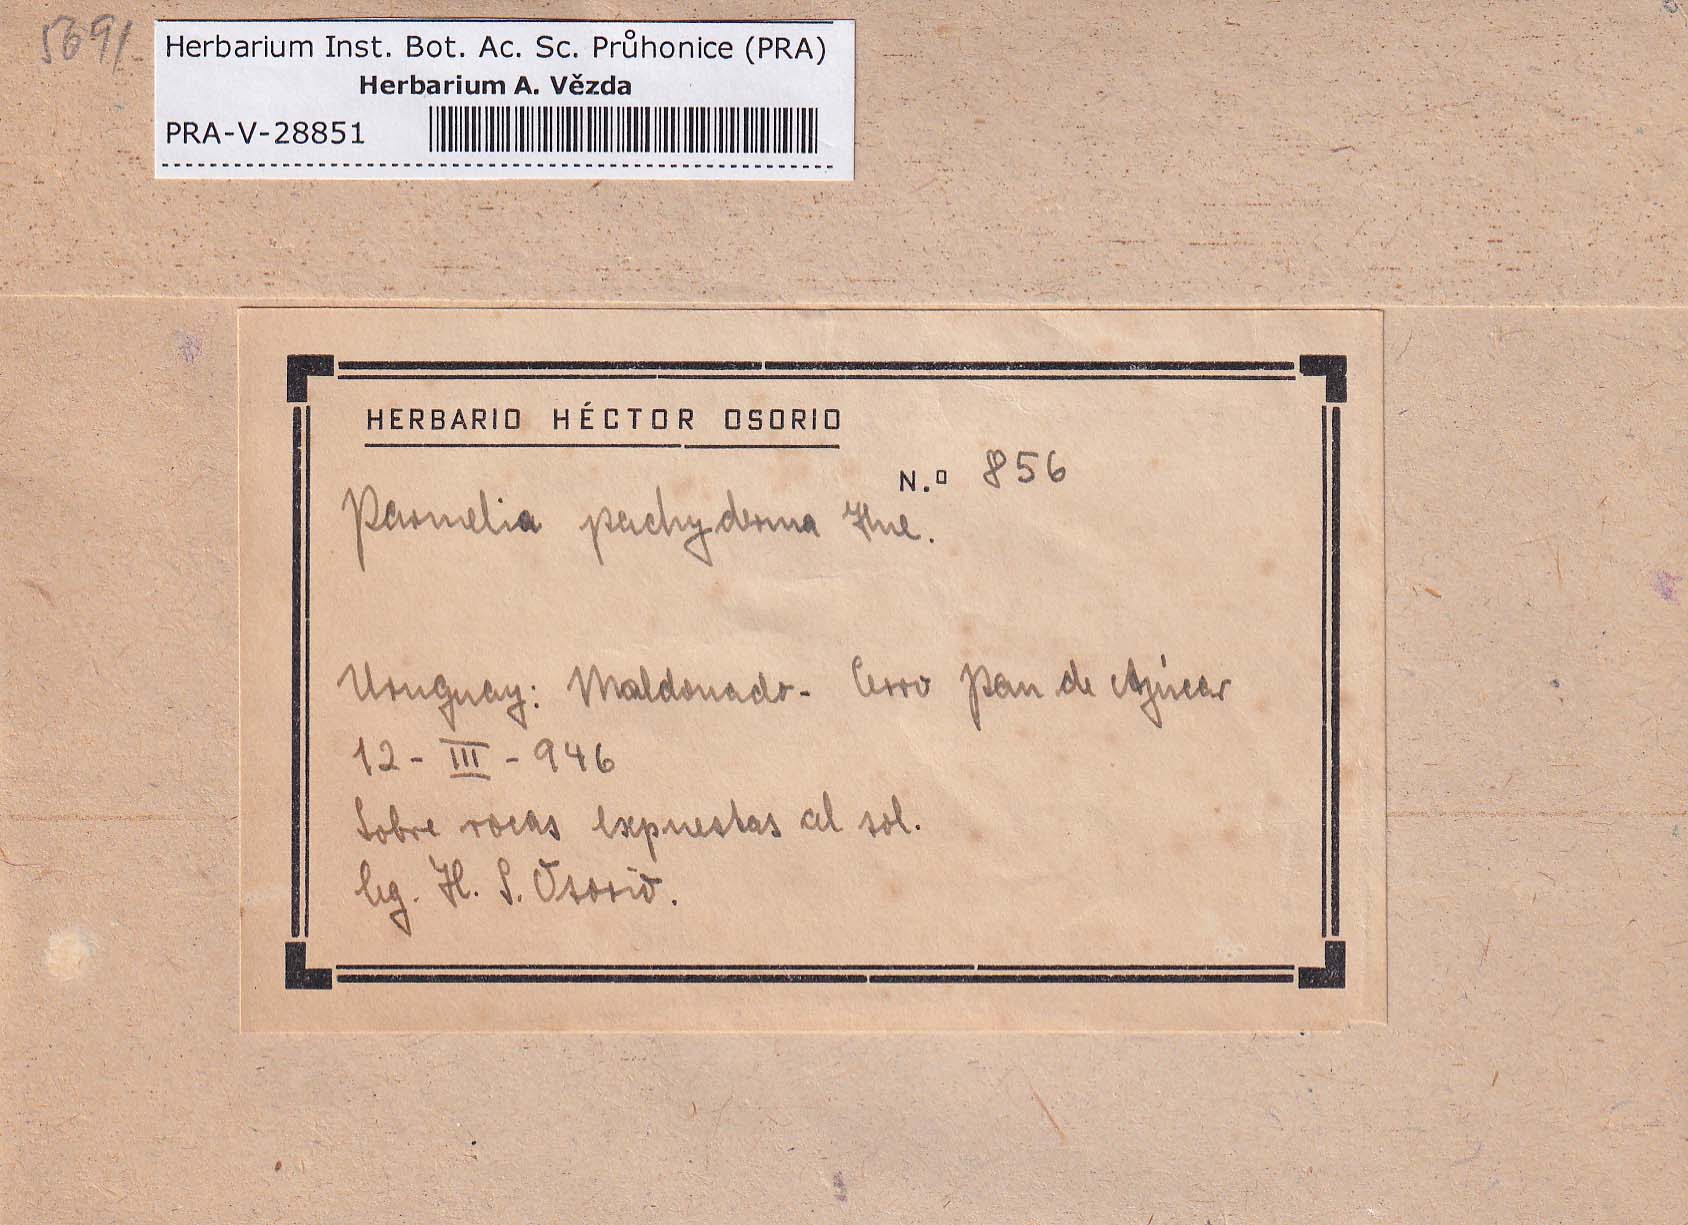 5691
Herbarium Inst. Bot. Ac. Sc. Průhonice (PRA)
Herbarium A. Vězda
PRA-V-28851
HERBARIO HÉCTOR OSORIO
N.o 856
Parmelia pachyderma Hue.
Uruguay: Maldonado- Cerro Pan de Azúcar
12-III-946
Sobre rocas expuestas al sol.
leg. H. S. Osorio.